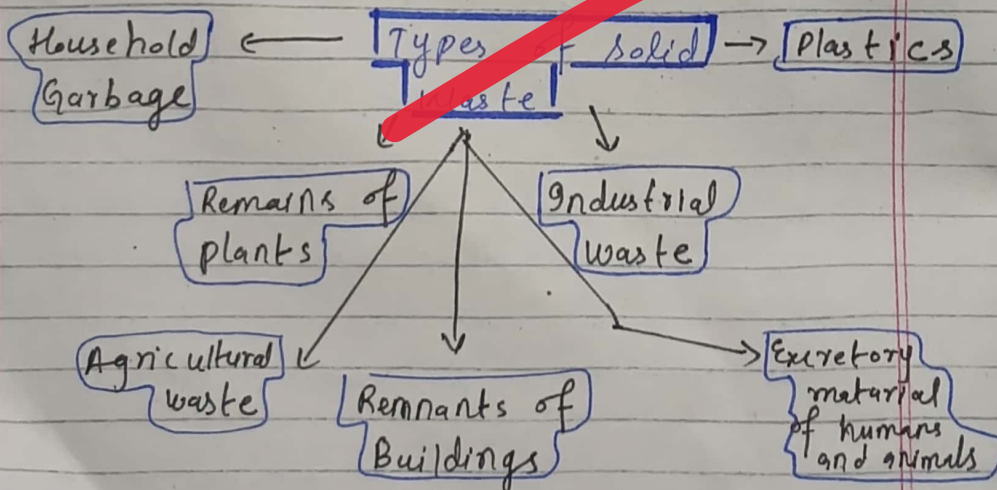 Household
Garbage
Types of solid
Waste
Plastics
Remains of
plants
Industrial
waste
Agricultural
waste
Remnants of
Buildings
Excretory
matarial
of humans
and animals